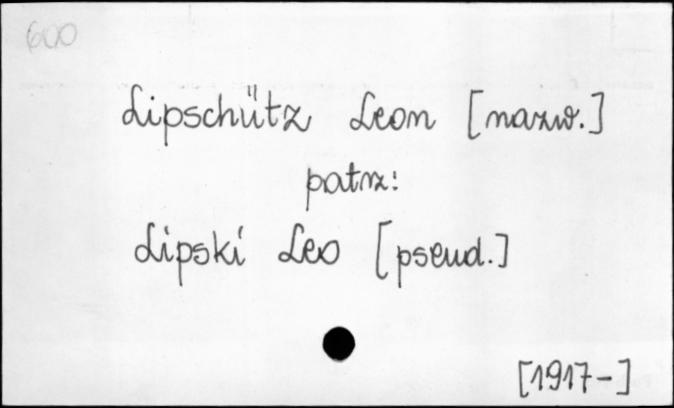 600
Lipschütz Leon [nazw.]
patrz:
Lipski Leo [pseud.]
[1917-]